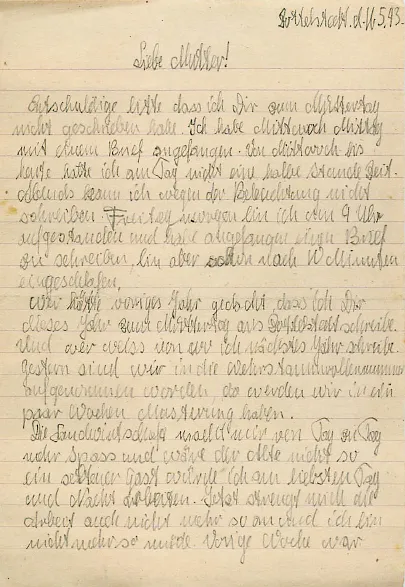 Pottelstadt, d. 16.5.43.
Liebe Mutter!
Entschuldige bitte dass ich Dir zum Muttertag
nicht geschrieben habe. Ich habe Mittwoch Mittag
mit einem Brief angefangen. Von Mittwoch bis
heute hatte ich am Tag nicht eine halbe Stunde Zeit.
Abends kann ich wegen der Beleuchtung nicht
schreiben. Freitag morgen bin ich um 9 Uhr
aufgestanden und habe angefangen einen Brief
zu schreiben, bin aber schon nach 10 Minuten
eingeschlafen.
Wer hätte voriges Jahr gedacht, dass ich Dir
dieses Jahr zum Muttertag aus Pottelstadt schreibe.
Und wer weiss von wo ich nächstes Jahr schreibe.
Gestern sind wir in die Wehrstammrollennummer
aufgenommen worden, da werden wir in ein
paar Wochen Musterung haben.
Die Landwirtschaft macht mir von Tag zu Tag
mehr Spass und wäre der Alte nicht so
ein Gast würde ich am liebsten Tag
und Nacht arbeiten. Jetzt strengt mich die
Arbeit auch nicht mehr so an und ich bin
nicht mehr so müde. Vorige Woche war